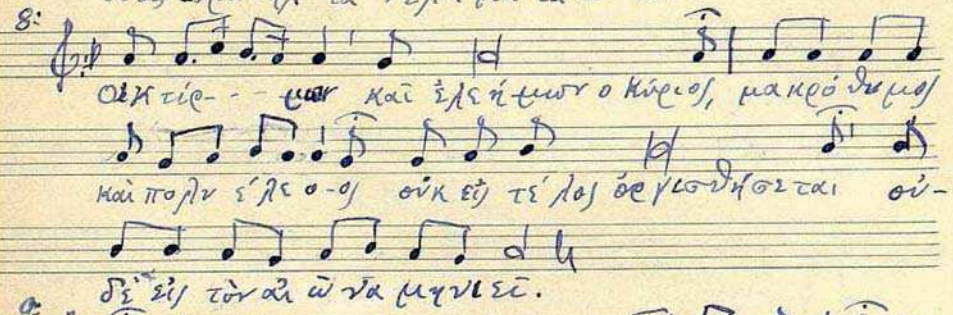 8:
Οἰκτίρ- - - μων καὶ ἐλεήμων ο Κύριος, μακρόθυμος
καὶ πολυέλεο-ος οὐκ εἰς τέλος ὀργισθήσεται οὐ-
δὲ εἰς τὸν αἰῶνα μηνιεῖ.